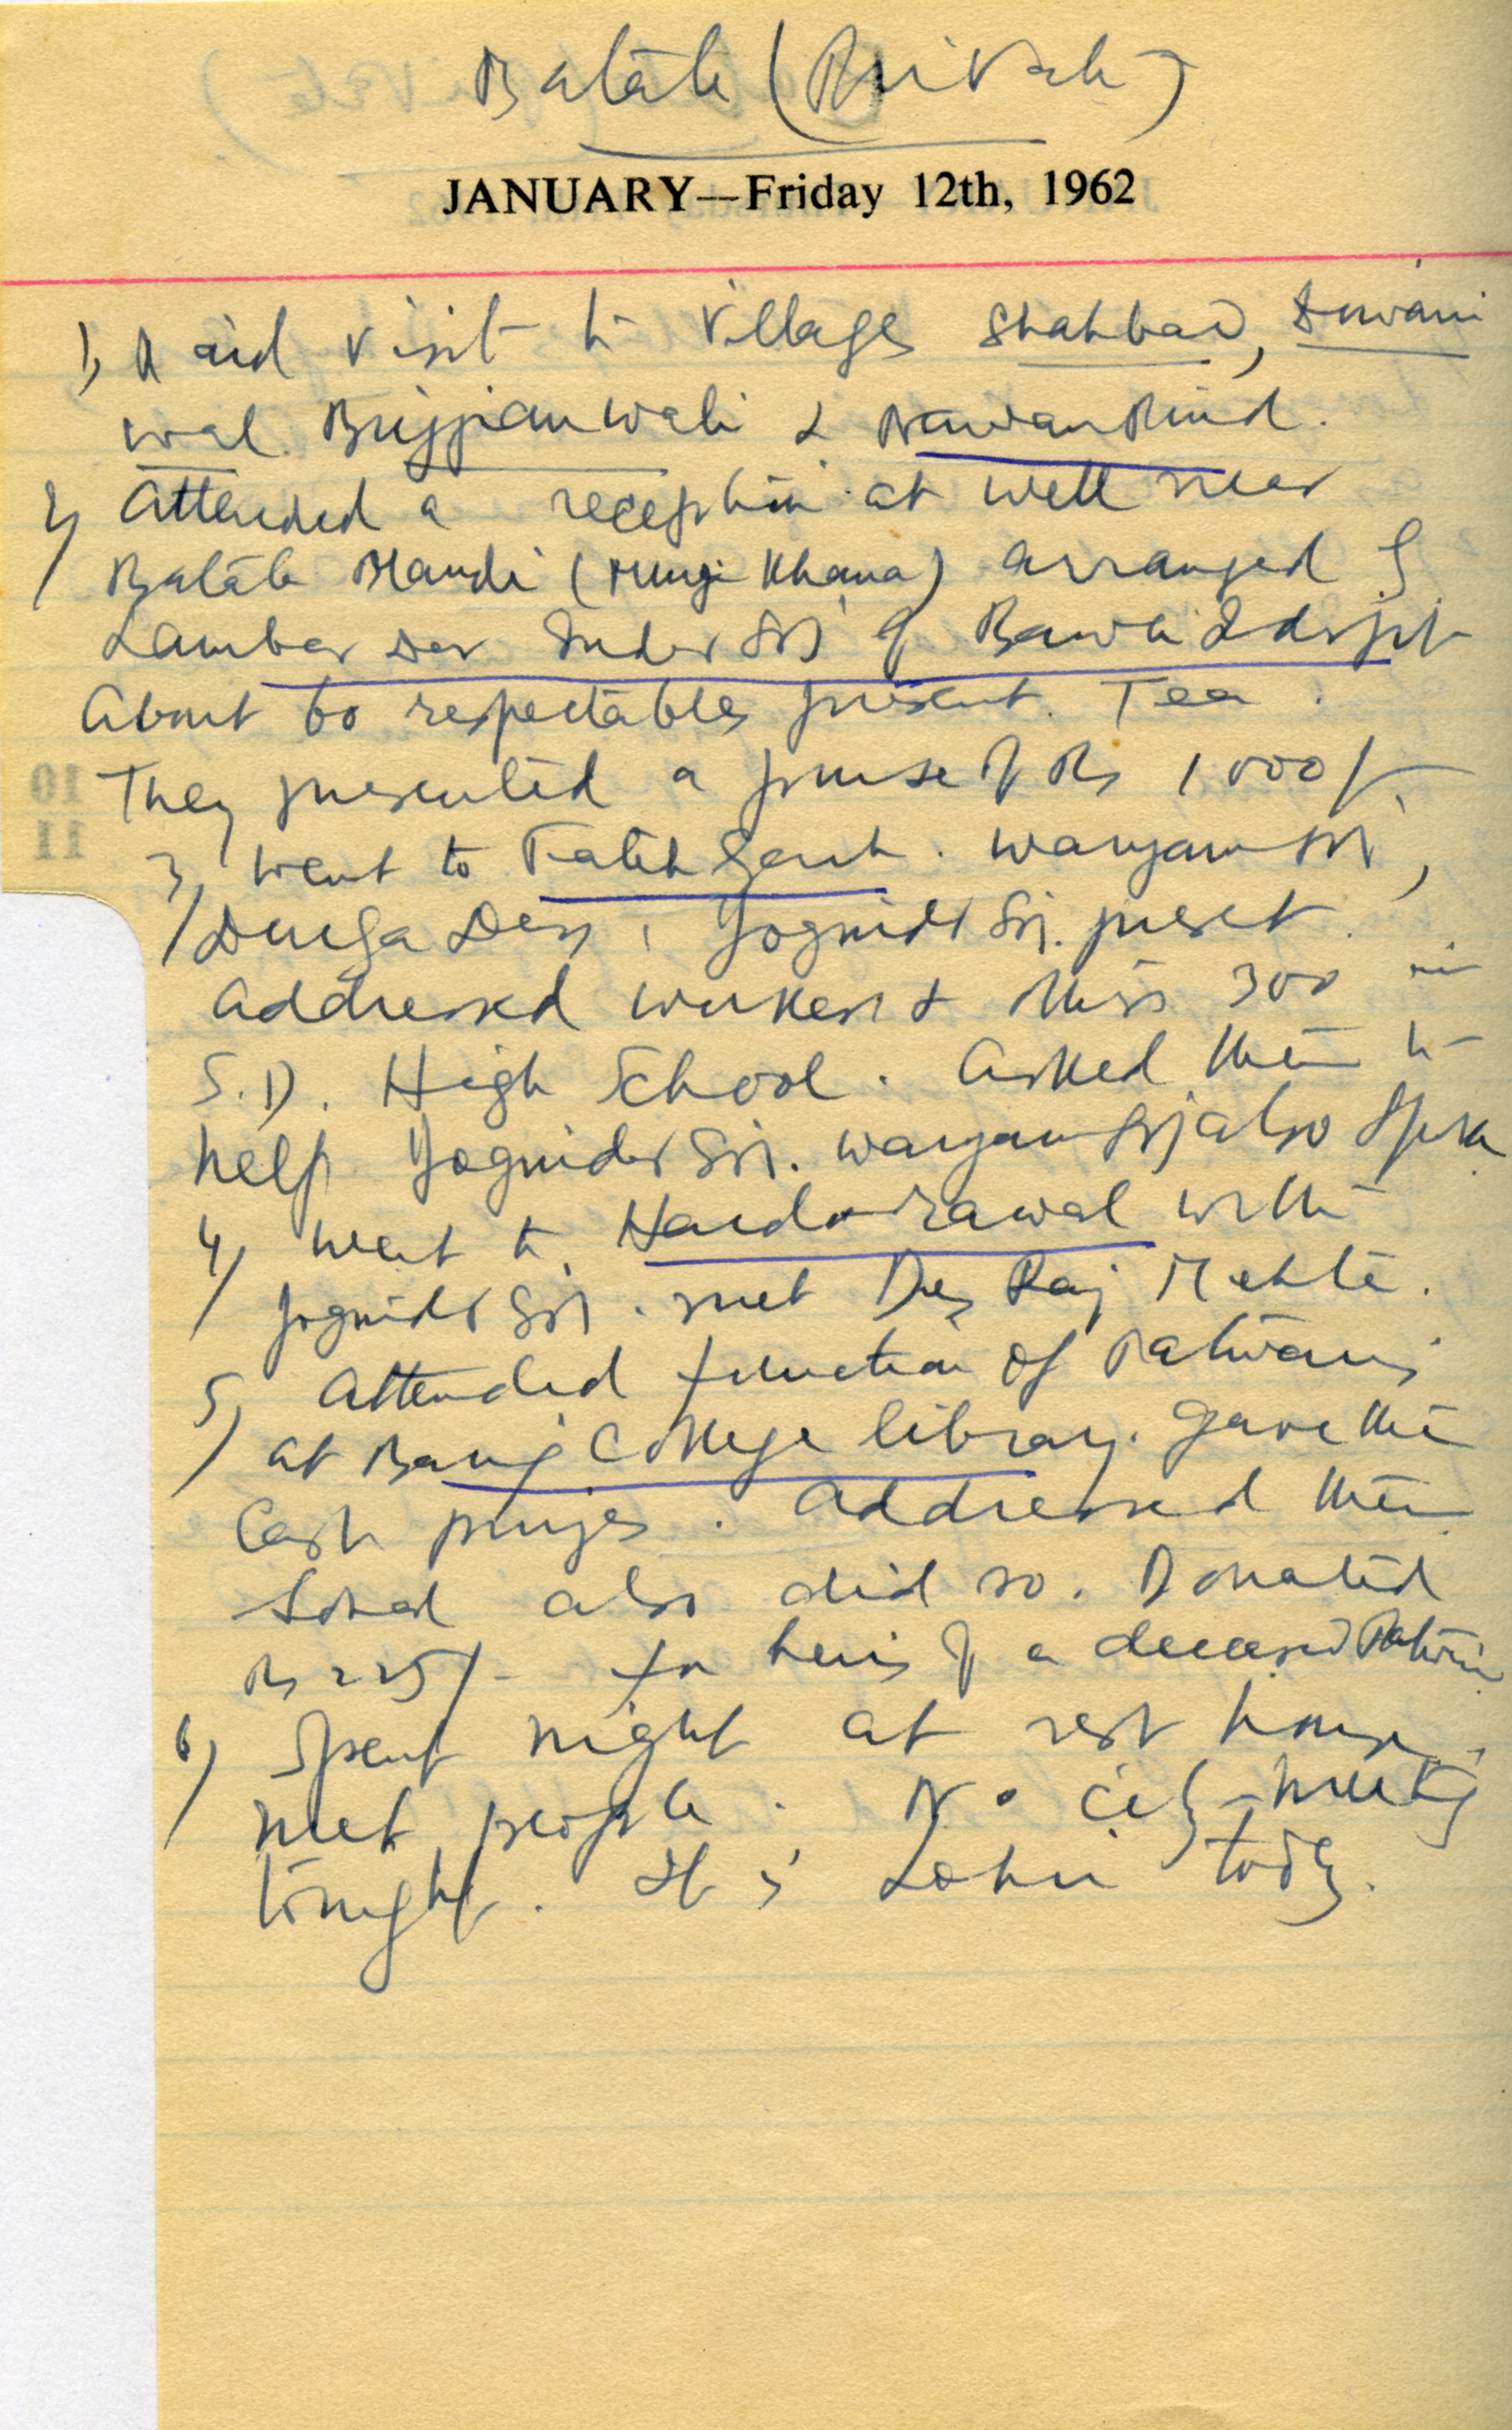 Batala (Private)
JANUARY—Friday 12th, 1962
1) Paid visit to Villages Shahbad, Diwani
wal Brijjianwali & Nawan Pind.
2) Attended a reception at well near
Batala Mandi (Murgi Khana) arranged by
Lamberdar Inder Sn. of Bawli Inderjit
About 60 respectables present. Tea.
They presented a purse of Rs 1000/-
3) Went to Fateh Garh. Waryam Sn,
Durga Dass, Joginder Sn. present.
Addressed workers & others 300 in
S.D. High School. Asked them to
help Joginder Sn. Waryam Sn also spoke
4) Went to Hardorawal with
Joginder Sn. met Des Raj Mehta.
5) Attended function of Patwaris
at Baring College library. Gave the
Cash prizes. Addressed them
also did so. Donated
Rs 225/- for heirs of a deceased Patwari
6) Spent night at rest house.
Met people. No city meeting
tonight. It is Lohri today.
10
11